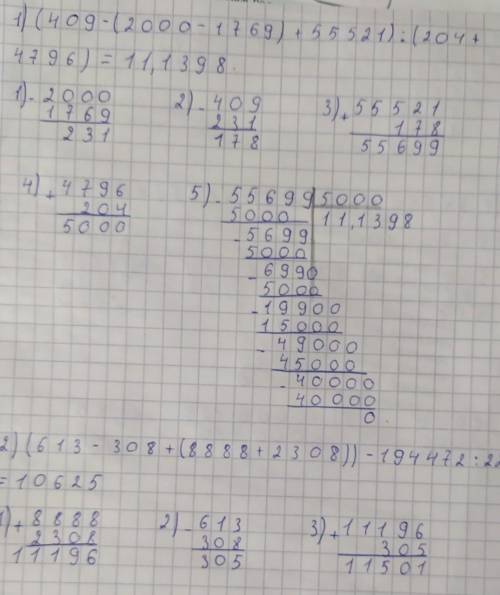 1) (409-(2000-1769)+55521):(204+
4796) = 11,1398.
1) - 2000
1769
231
2) - 409
231
178
3) + 55521
178
55699
4) + 4796
204
5000
5) - 55699 | 5000
5000 11,1398
- 5699
5000
- 6990
5000
- 19900
15000
- 49000
45000
- 40000
40000
0.
2) (613-308+(8888+2308))-194472:22
=10625
1) + 8888
2308
11196
2) - 613
308
305
3) + 11196
305
11501